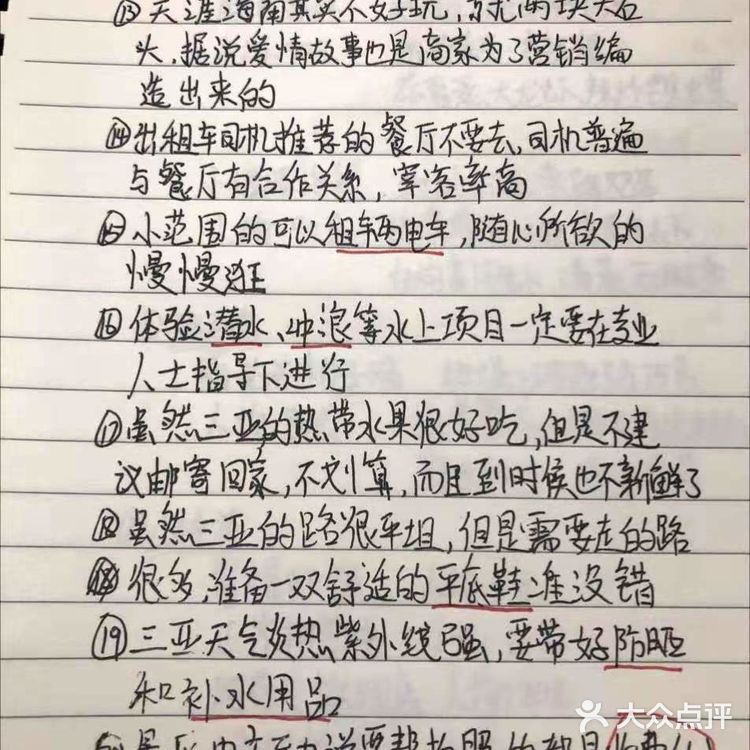 ⑬天涯海南其实不好玩,就两块大石
头,据说爱情故事也是商家为了营销编
造出来的
⑭出租车司机推荐的餐厅不要去,司机普遍
与餐厅有合作关系,宰客率高
⑮小范围的可以租辆电车,随心所欲的
慢慢逛
⑯体验潜水、冲浪等水上项目一定要在专业
人士指导下进行
⑰虽然三亚的热带水果很好吃,但是不建
议邮寄回家,不划算,而且到时候也不新鲜了
⑱虽然三亚的路很平坦,但是需要走的路
⑱很多,准备一双舒适的平底鞋准没错
⑲三亚天气炎热紫外线强,要带好防晒
和补水用品
大众点评